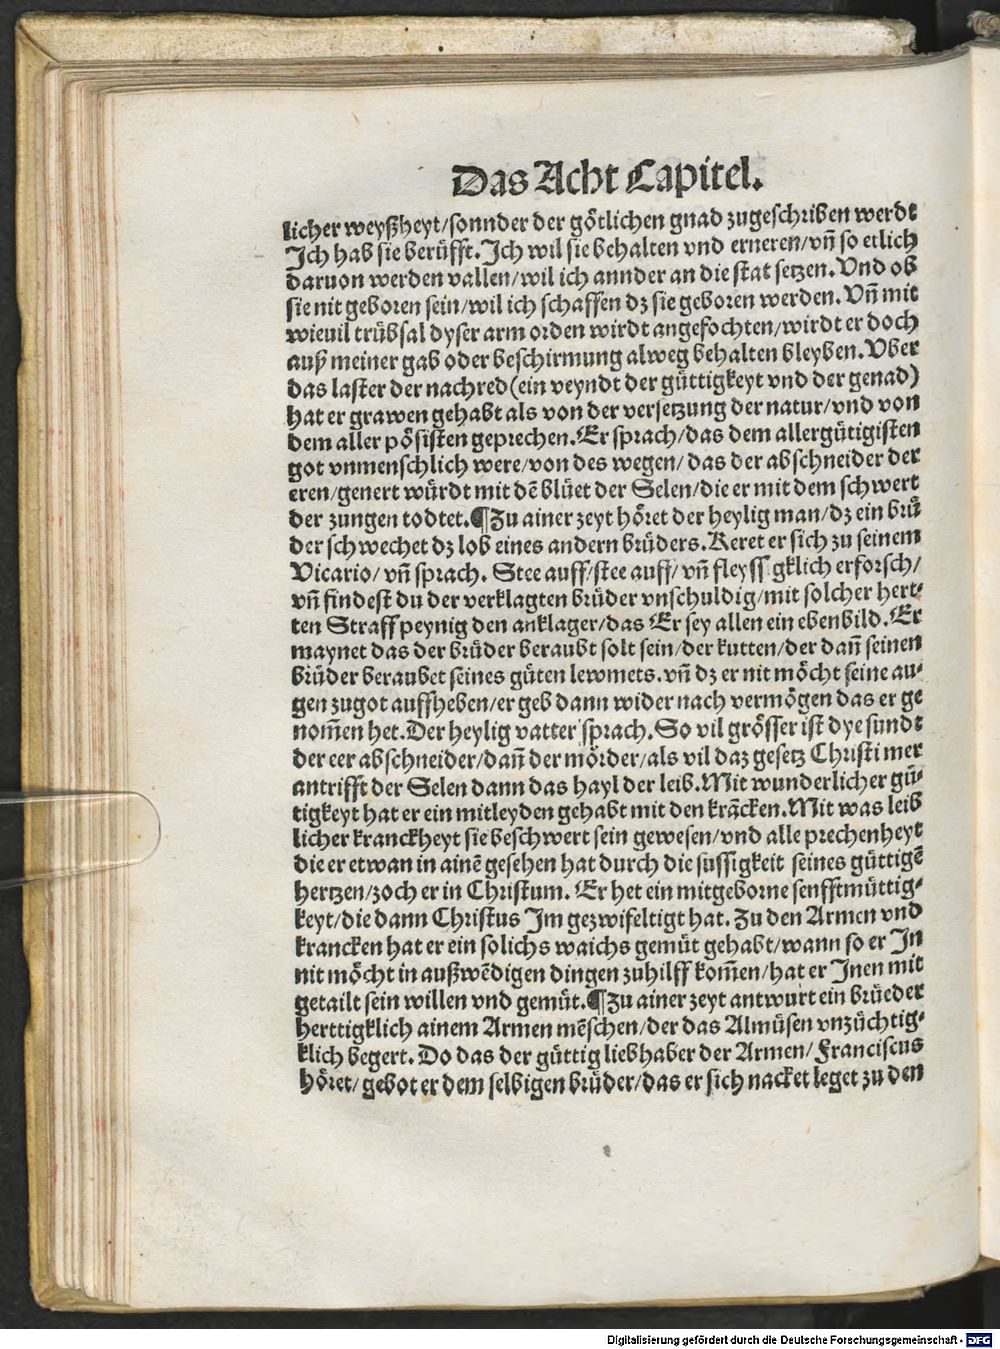 Das Acht Capitel.
licher weyßheyt/sonnder der götlichen gnad zugeschriben werde
Ich hab sie berüfft. Ich wil sie behalten vnd erneren/vn̄ so etlich
daruon werden vallen/wil ich annder an die stat setzen. Vnd ob
sie nit geboren sein/wil ich schaffen dz sie geboren werden. Vn̄ mit
wieuil trübsal dyser arm orden wirdt angefochten/wirdt er doch
auß meiner gab oder beschirmung alweg behalten bleyben. Vber
das laster der nachred (ein veyndt der güttigkeyt vnd der genad)
hat er grawen gehabt als von der versetzung der natur/vnd von
dem aller pösisten geprechen. Er sprach/das dem allergütigisten
got vnmenschlich were/von des wegen/das der abschneider der
eren/genert würdt mit dē blüet der Selen/die er mit dem schwert
der zungen todtet. ¶Zu ainer zeyt höret der heylig man/dz ein brü
der schwechet dz lob eines andern brüders. Keret er sich zu seinem
Vicario/vn̄ sprach. Stee auff/stee auff/vn̄ fleyssigklich erforsch/
vn̄ findest du der verklagten brüder vnschuldig/mit solcher hert⸗
ten Straff peynig den anklager/das Er sey allen ein ebenbild. Er
maynet das der brüder beraubt solt sein/der kutten/der dan̄ seinen
brüder beraubet seines güten lewmets. vn̄ dz er nit möcht seine au⸗
gen zugot auffheben/er geb dann wider nach vermögen das er ge
nom̄en het. Der heylig vatter sprach. So vil grösser ist dye sunde
der eer abschneider/dan̄ der mörder/als vil daz gesetz Christi mer
antrifft der Selen dann das hayl der leib. Mit wunderlicher gü⸗
tigkeyt hat er ein mitleyden gehabt mit den krācken. Mit was leib
licher kranckheyt sie beschwert sein gewesen/vnd alle prechenheyt
die er etwan in ainē gesehen hat durch die sussigkeit seines güttigē
hertzen/zoch er in Christum. Er het ein mitgeborne senfftmüttig⸗
keyt/die dann Christus Im gezwifeltigt hat. Zu den Armen vnd
krancken hat er ein solichs waichs gemüt gehabt/wann so er In
nit möcht in außwēdigen dingen zuhilff kom̄en/hat er Inen mit
getailt sein willen vnd gemüt. ¶Zu ainer zeyt antwurt ein brüeder
herttigklich ainem Armen mēschen/der das Almüsen vnzüchtig⸗
klich begert. Do das der güttig liebhaber der Armen/Franciscus
höret/gebot er dem selbigen brüder/das er sich nacket leget zu den
Digitalisierung gefördert durch die Deutsche Forschungsgemeinschaft - DFG